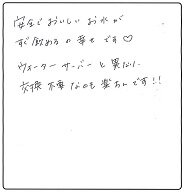 安全でおいしいお水が
すぐ飲める幸せです♡
ウォーターサーバーと異なり
交換不要なのも楽ちんです!!